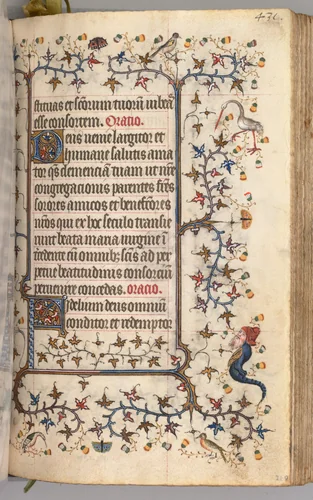 stituas et scorum tuorum iubeas
esse consortem. Oratio.
Deus uenie largitor et
humane salutis ama
tor qs clemenciam tuam ut nre
congregacionis parentes fres
sorores amicos et benefcores
nros qui ex hoc seculo transie
runt beata maria uirgine in
tercedente cum omnibus scis ad per
petue beatitudinis consorcium
peruenire concedas. oracio.
Fidelium deus omnium
conditor et redemptor